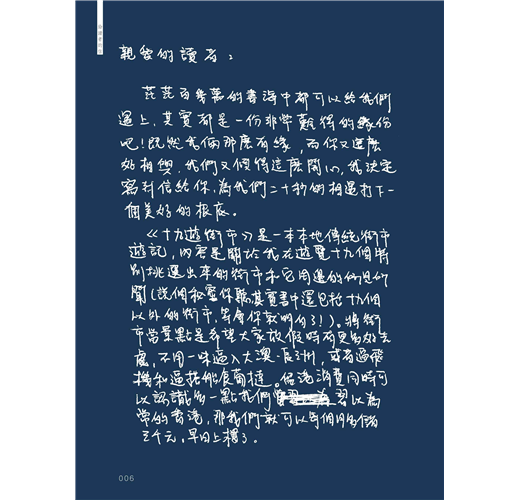 親愛的讀者：
茫茫百幾萬的書海中都可以給我們
遇上，其實都是一份非常難得的緣份
吧！既然我倆那麼有緣，而你又這麼
好相與，我們又傾得這麼開心，我決定
寫封信給你，為我們二十秒的相遇打下一
個美好的根底。
《十九遊街市》是一本本地傳統街市
遊記，內容是關於我在遊覽十九個特
別挑選出來的街市和它周邊的所見所
聞（說個秘密你聽其實書中還包括十九個
以外的街市，等會你就明白了！）。將街
市當景點是希望大家放假時有更多好去
處，不用一味逼入大澳、長洲，或者逼飛
機和逼拖船度蜜撻。留港消費同時可
以認識多一點我們習以為
常的香港，那我們就可以每個月多儲
三千元，早日上樓了。
006